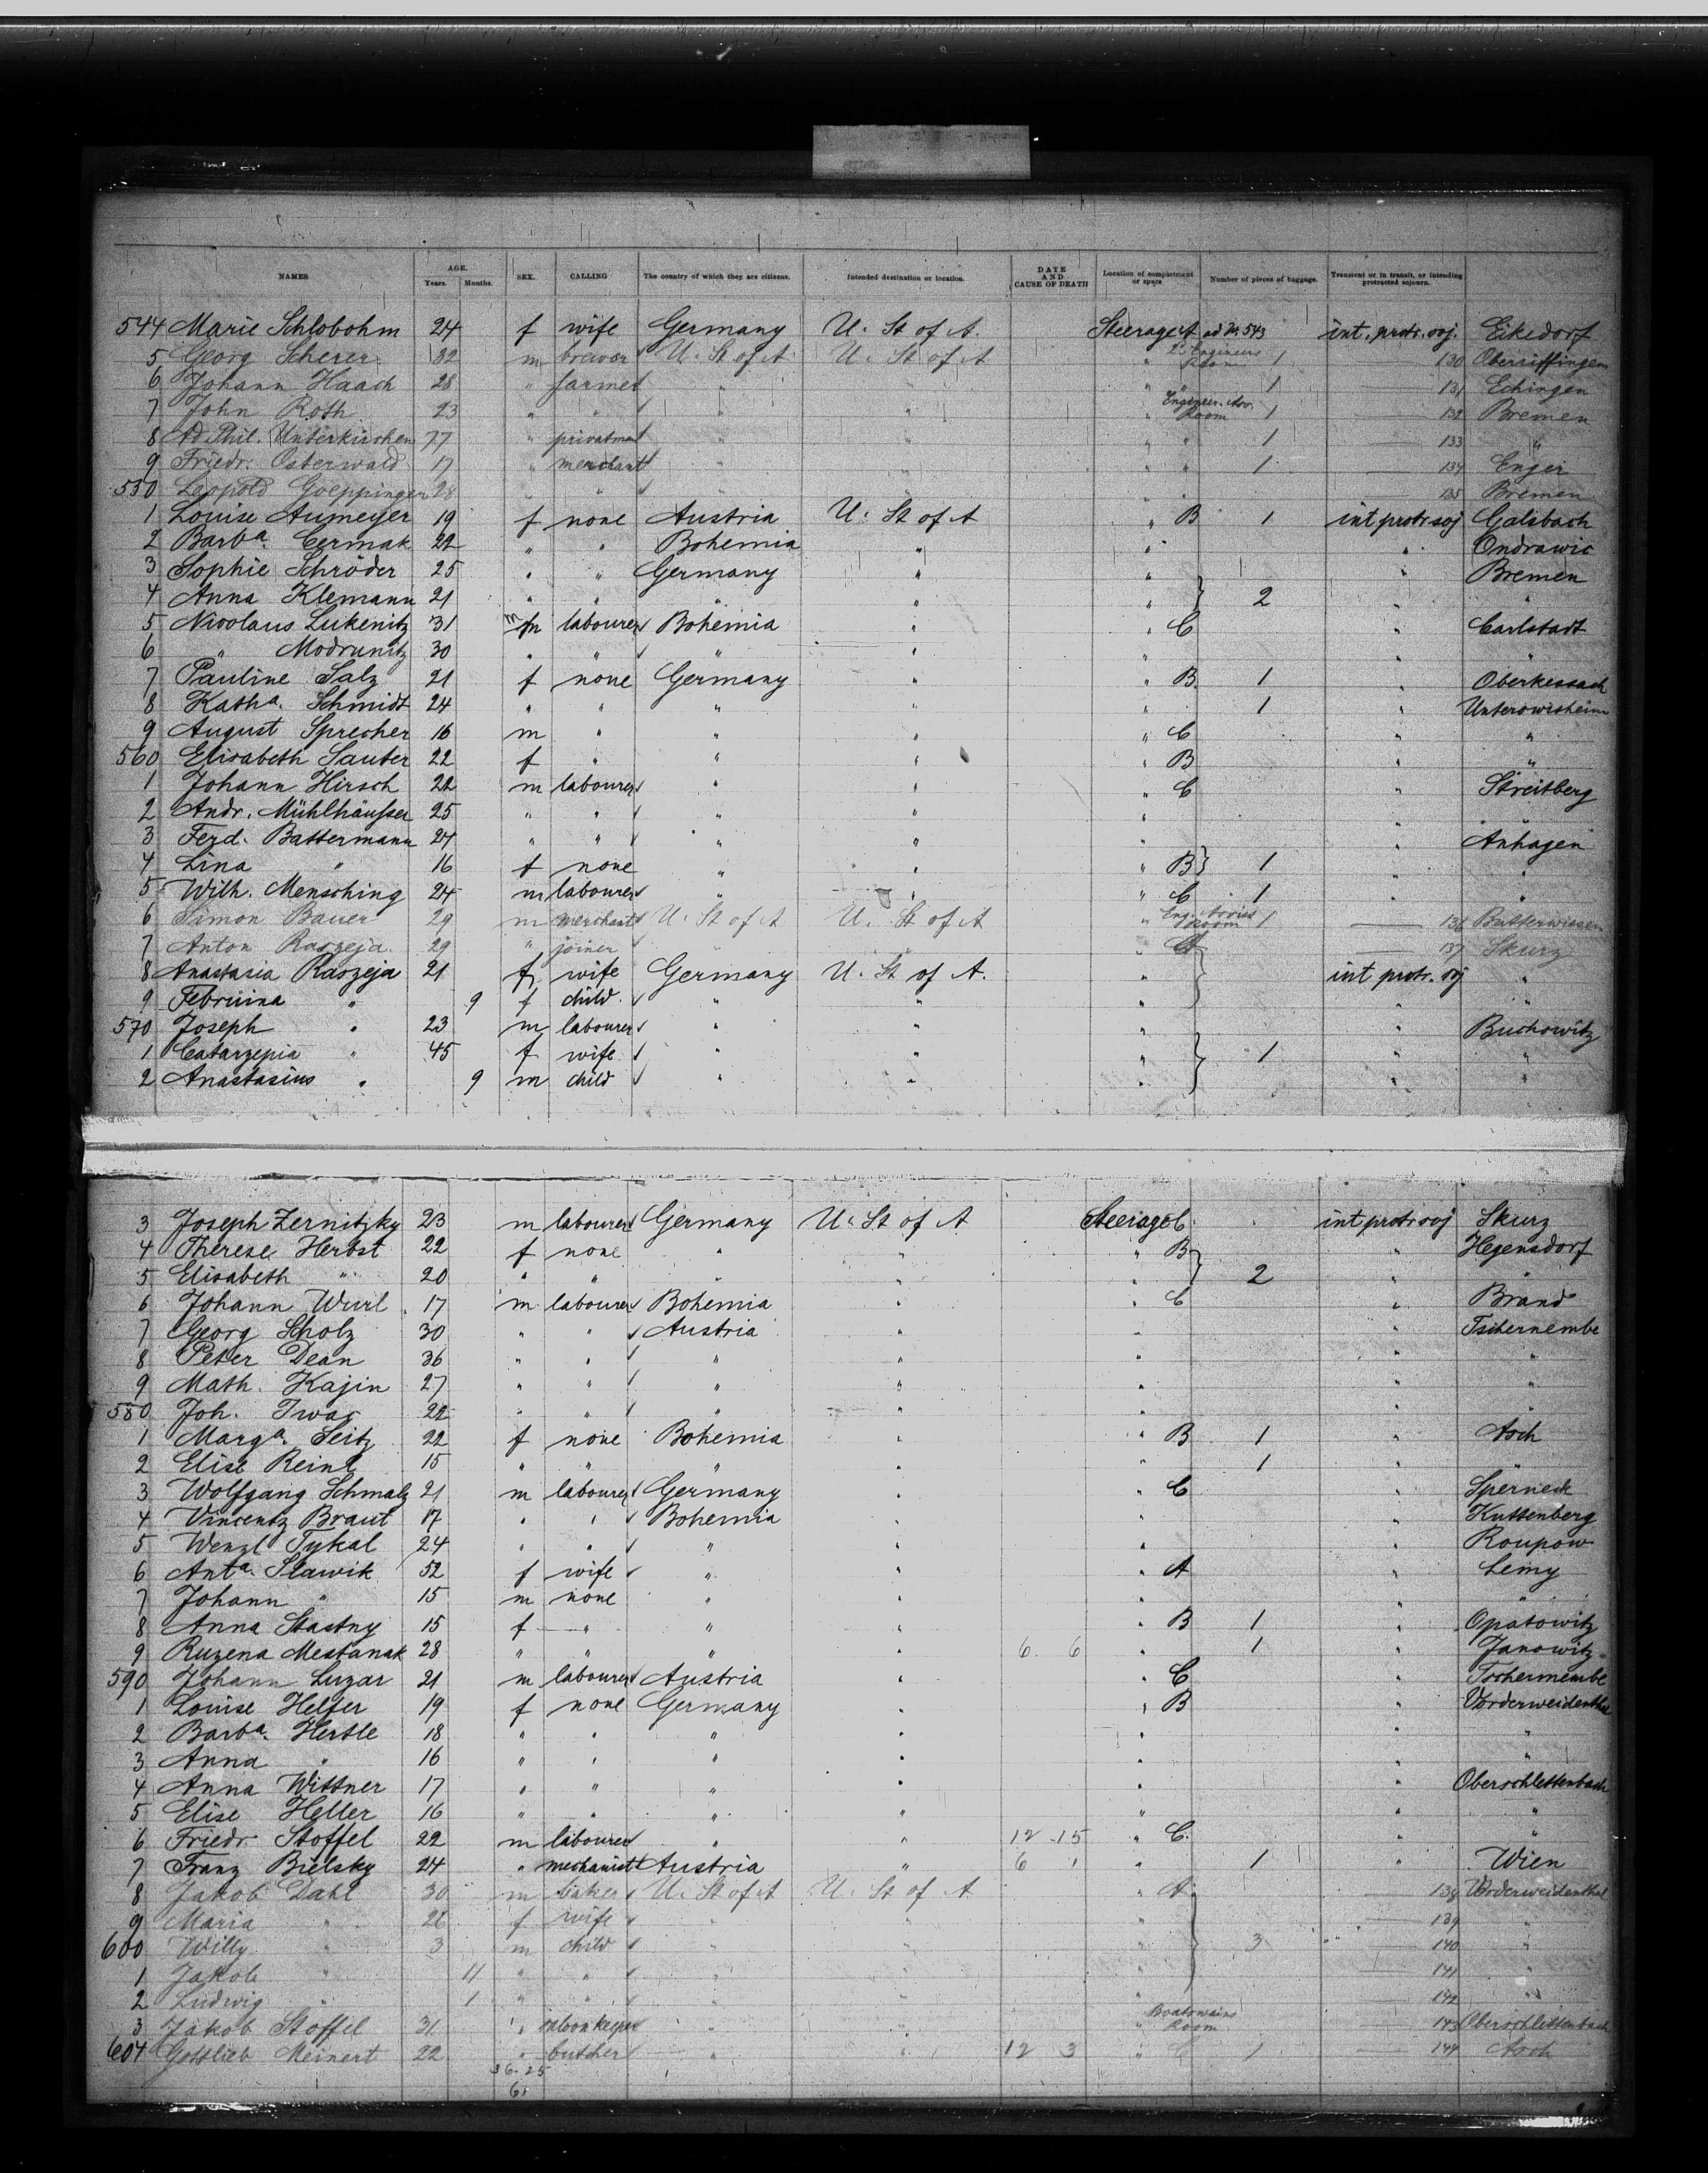 NAMES AGE. Years. Months. SEX. CALLING The country of which they are citizens. Intended destination or location. DATE AND CAUSE OF DEATH Location of compartment or space Number of pieces of baggage. Transient or in transit, or intending protracted sojourn.
544 Marie Schlobohm 24 f wife Germany U. St of A. Steerage A ad Nr. 543 int. protr. soj. Eikedorf
5 Georg Scherer 32 m brewer U. St of A U. St of A " Engineers Room 1 130
6 Johann Haach 28 " farmer " " 1 131 Echingen
7 John Roth 23 " " " " Room 1 132 Bremen
8 Ad. Phil. Unterkirchen 77 " privatman " " " " 1 133 "
9 Friedr. Osterwald 17 " merchant " " " " 1 134 Enger
550 Leopold Goeppinger 28 " " " " " 135 Bremen
1 Louise Aumeyer 19 f none Austria U. St of A " B 1 int protr soj Galsbach
2 Barba. Cermak 22 " " Bohemia " " " Ondrawic
3 Sophie Schröder 25 " " Germany " " " Bremen
4 Anna Klemann 21 " " " " " 2 " "
5 Nicolaus Lukenitz 31 m labourer Bohemia " " C " Carlstadt
6 " Modrunitz 30 " " " " " " "
7 Pauline Salz 21 f none Germany " " B 1 " Oberkessach
8 Katha. Schmidt 24 " " " " " 1 " Unterowisheim
9 August Sprecher 16 m " " " " C " "
560 Elisabeth Sauter 22 f " " " " B " "
1 Johann Hirsch 22 m labourer " " " C " Streitberg
2 Andr. Mühlhäusser 25 " " " " " " "
3 Ferd. Battermann 24 " " " " " " Anhagen
4 Lina " 16 f none " " " B 1 " "
5 Wilh. Mensching 24 m labourer " " " C 1 " "
6 Simon Bauer 29 m merchant U. St of A U. St of A " Room 1 136 Butterwiesen
7 Anton Raszeja 29 " joiner " A 137 Skurz
8 Anastasia Raszeja 21 f wife Germany U. St of A. " int protr. soj "
9 Februina " 9 f child " " " " "
570 Joseph " 23 m labourer " " " " Buchowitz
1 Catarzepia " 45 f wife " " " 1 " "
2 Anastasius " 9 m child " " " " "
3 Joseph Zernitzky 23 m labourer Germany U. St of A Steerage C int protr soj Skurz
4 Therese Herbst 22 f none " " " B " Hegensdorf
5 Elisabeth " 20 " " " " " 2 " "
6 Johann Wurl 17 m labourer Bohemia " " C " Brand
7 Georg Scholz 30 " " Austria " " " Tschernembe
8 Peter Dean 36 " " " " " " "
9 Math. Kajin 27 " " " " " " "
580 Joh. Iwas 22 " " " " " " "
1 Marga. Seitz 22 f none Bohemia " " B 1 " Asch
2 Elise Reinl 15 " " " " " 1 " "
3 Wolfgang Schmalz 21 m labourer Germany " " C " Sperneck
4 Vincentz Braut 17 " " Bohemia " " " Kuttenberg
5 Wenzl Tykal 24 " " " " " " Roupow
6 Anta. Slawik 52 f wife " " " A " Lemy
7 Johann " 15 m none " " " " "
8 Anna Stastny 15 f " " " " B 1 " Opatowitz
9 Ruzena Mestanak 28 " " " " 6 6 " 1 " Janowitz
590 Johann Luzar 21 m labourer Austria " " C " Tschermembe
1 Louise Helfer 19 f none Germany " " B " Vorderweidentha
2 Barba. Hertle 18 " " " " " " "
3 Anna " 16 " " " " " " "
4 Anna Wittner 17 " " " " " " Oberschlettenbach
5 Elise Heller 16 " " " " " " "
6 Friedr Stoffel 22 m labourer " " 12 15 " C. " "
7 Franz Bielsky 24 " mechanist Austria " 6 1 " 1 " Wien
8 Jakob Dahl 30 m baker U. St of A U. St of A " A 138 Vorderweidenthal
9 Maria " 26 f wife " " " 139 "
600 Willy " 3 m child " " " 3 140 "
1 Jakob " 11 " " " " " 141 "
2 Ludwig " 1 " " " " " 142 "
3 Jakob Stoffel 31 " saloonkeeper " " " Boatswains Room 143 Oberschlettenbach
604 Gottlieb Meinert 22 " butcher " " 12 3 " C 1 144 Asch
36. 25
61